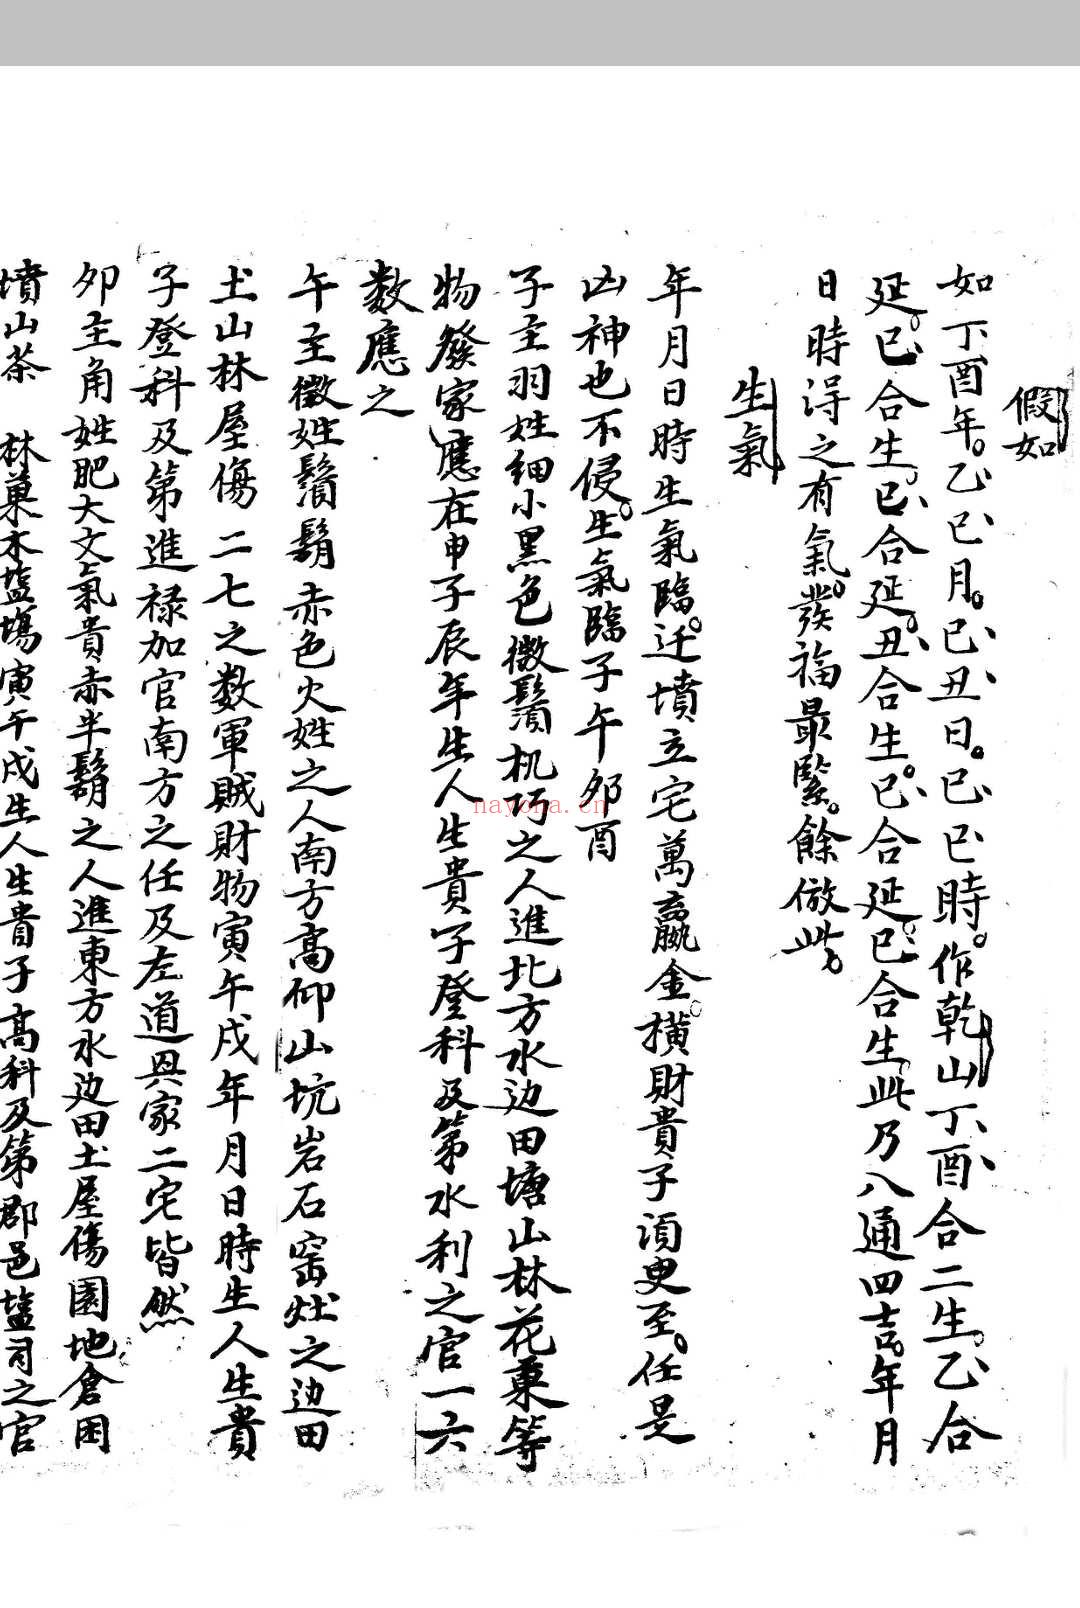 假如
如丁酉年。乙巳月。己丑日。己巳時。作乾山丁酉合二生。乙合
延。巳合生。巳合延。丑合生。巳合延。巳合生。此乃八通四吉。年月
日時得之有氣。發福最緊。餘倣此
生氣
年月日時生氣臨。迁墳立宅萬嬴金。橫財貴子湏臾至。任是
凶神也不侵。生氣臨子午夘酉
子主羽姓細小黑色微鬚机巧之人進北方水边田塘山林花菓等
物發家應在申子辰年生人生貴子登科及第水利之官一六
数應之
午主徵姓鬚鬍赤色火姓之人南方高仰山坑岩石窑灶之边田
土山林屋傷二七之数軍賊財物寅午戌年月日時生人生貴
子登科及第進禄加官南方之任及左道與家二宅皆然
夘主角姓肥大文氣貴赤半鬍之人進東方水边田土屋傷園地倉困
墳山茶 林菓木塩塲寅午戌生人生貴子高科及第郡邑塩司之官
nayona.cn